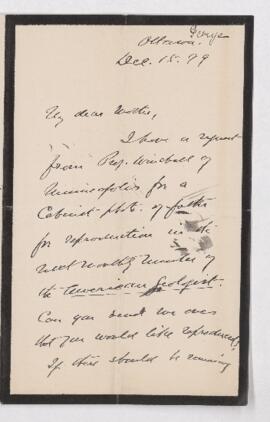 George
Ottawa.
Dec. 15. 99
My dear Mother,
I have a request
from Prof. Winchell of
Minneapolis for a
Cabinet photo. of father
for reproduction in the
next monthly number of
the American Geologist.
Can you send me one
that you would like reproduced.
If this should be remaining